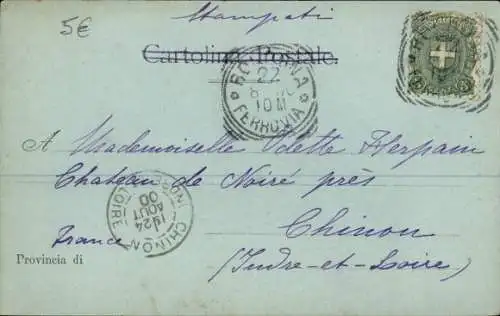 5€
Stampati
Cartolina Postale.
BOLOGNA
22
8
10M
FERROVIA
A Mademoiselle Odette Herpain
Chateau de Noiré près
Chinon
(Indre-et-Loire)
France
CHINON
19 24
AOUT
00
LOIRE
Provincia di